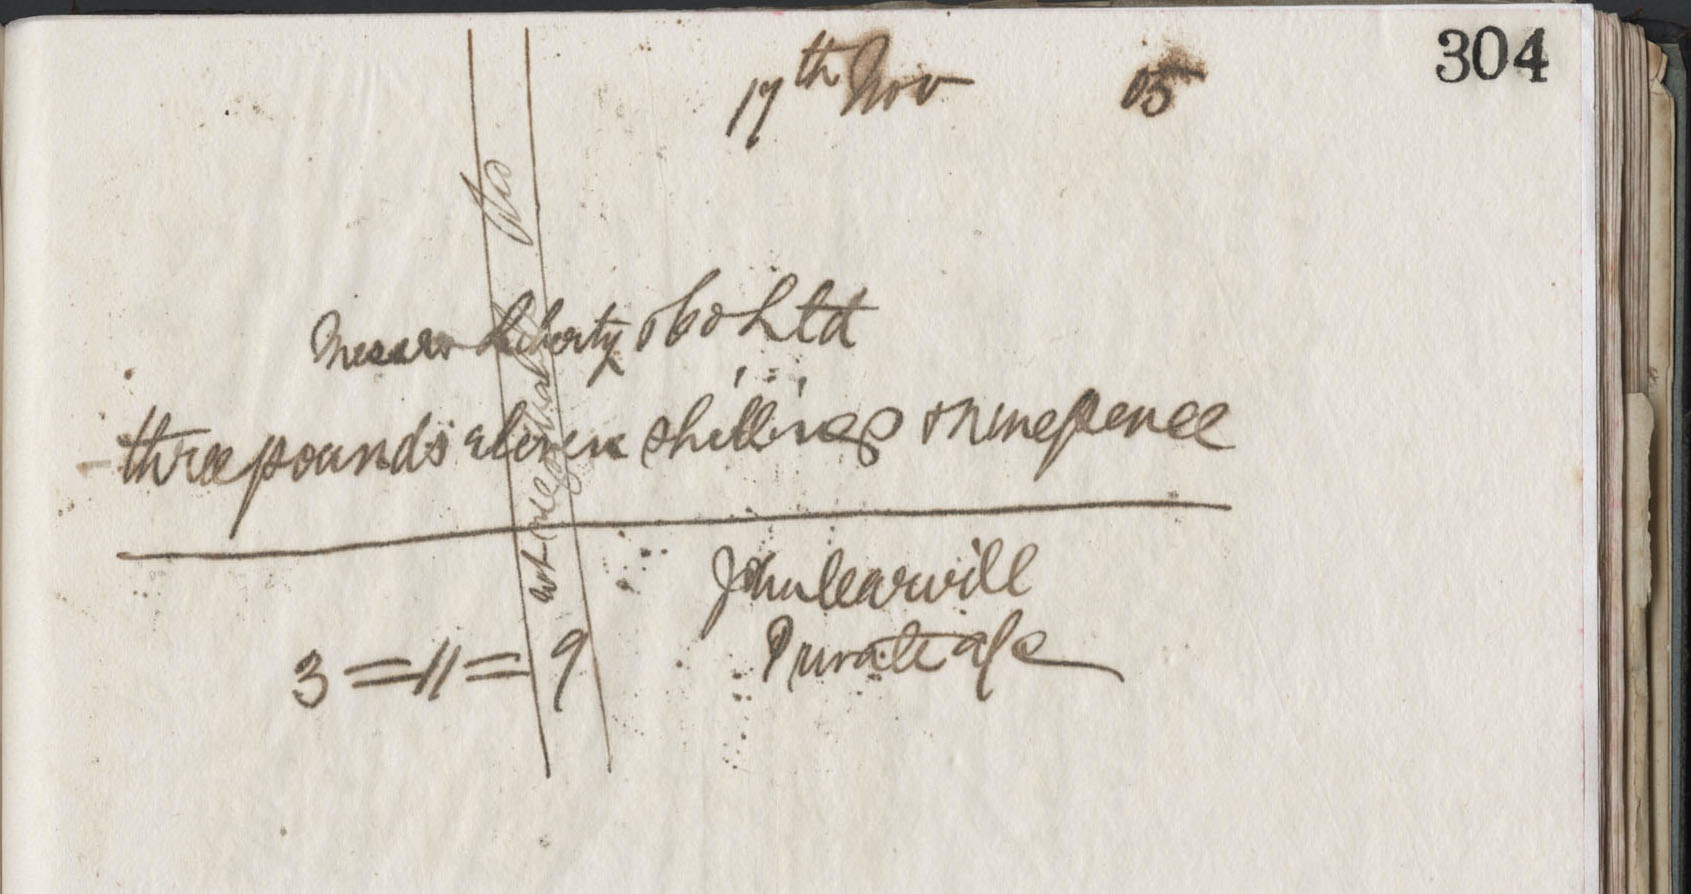 304
17th Nov 05
Messrs Liberty & Co Ltd
three pounds eleven shillings & ninepence
3 = 11 = 9
John Carwill
Private a/c
not negotiable & Co